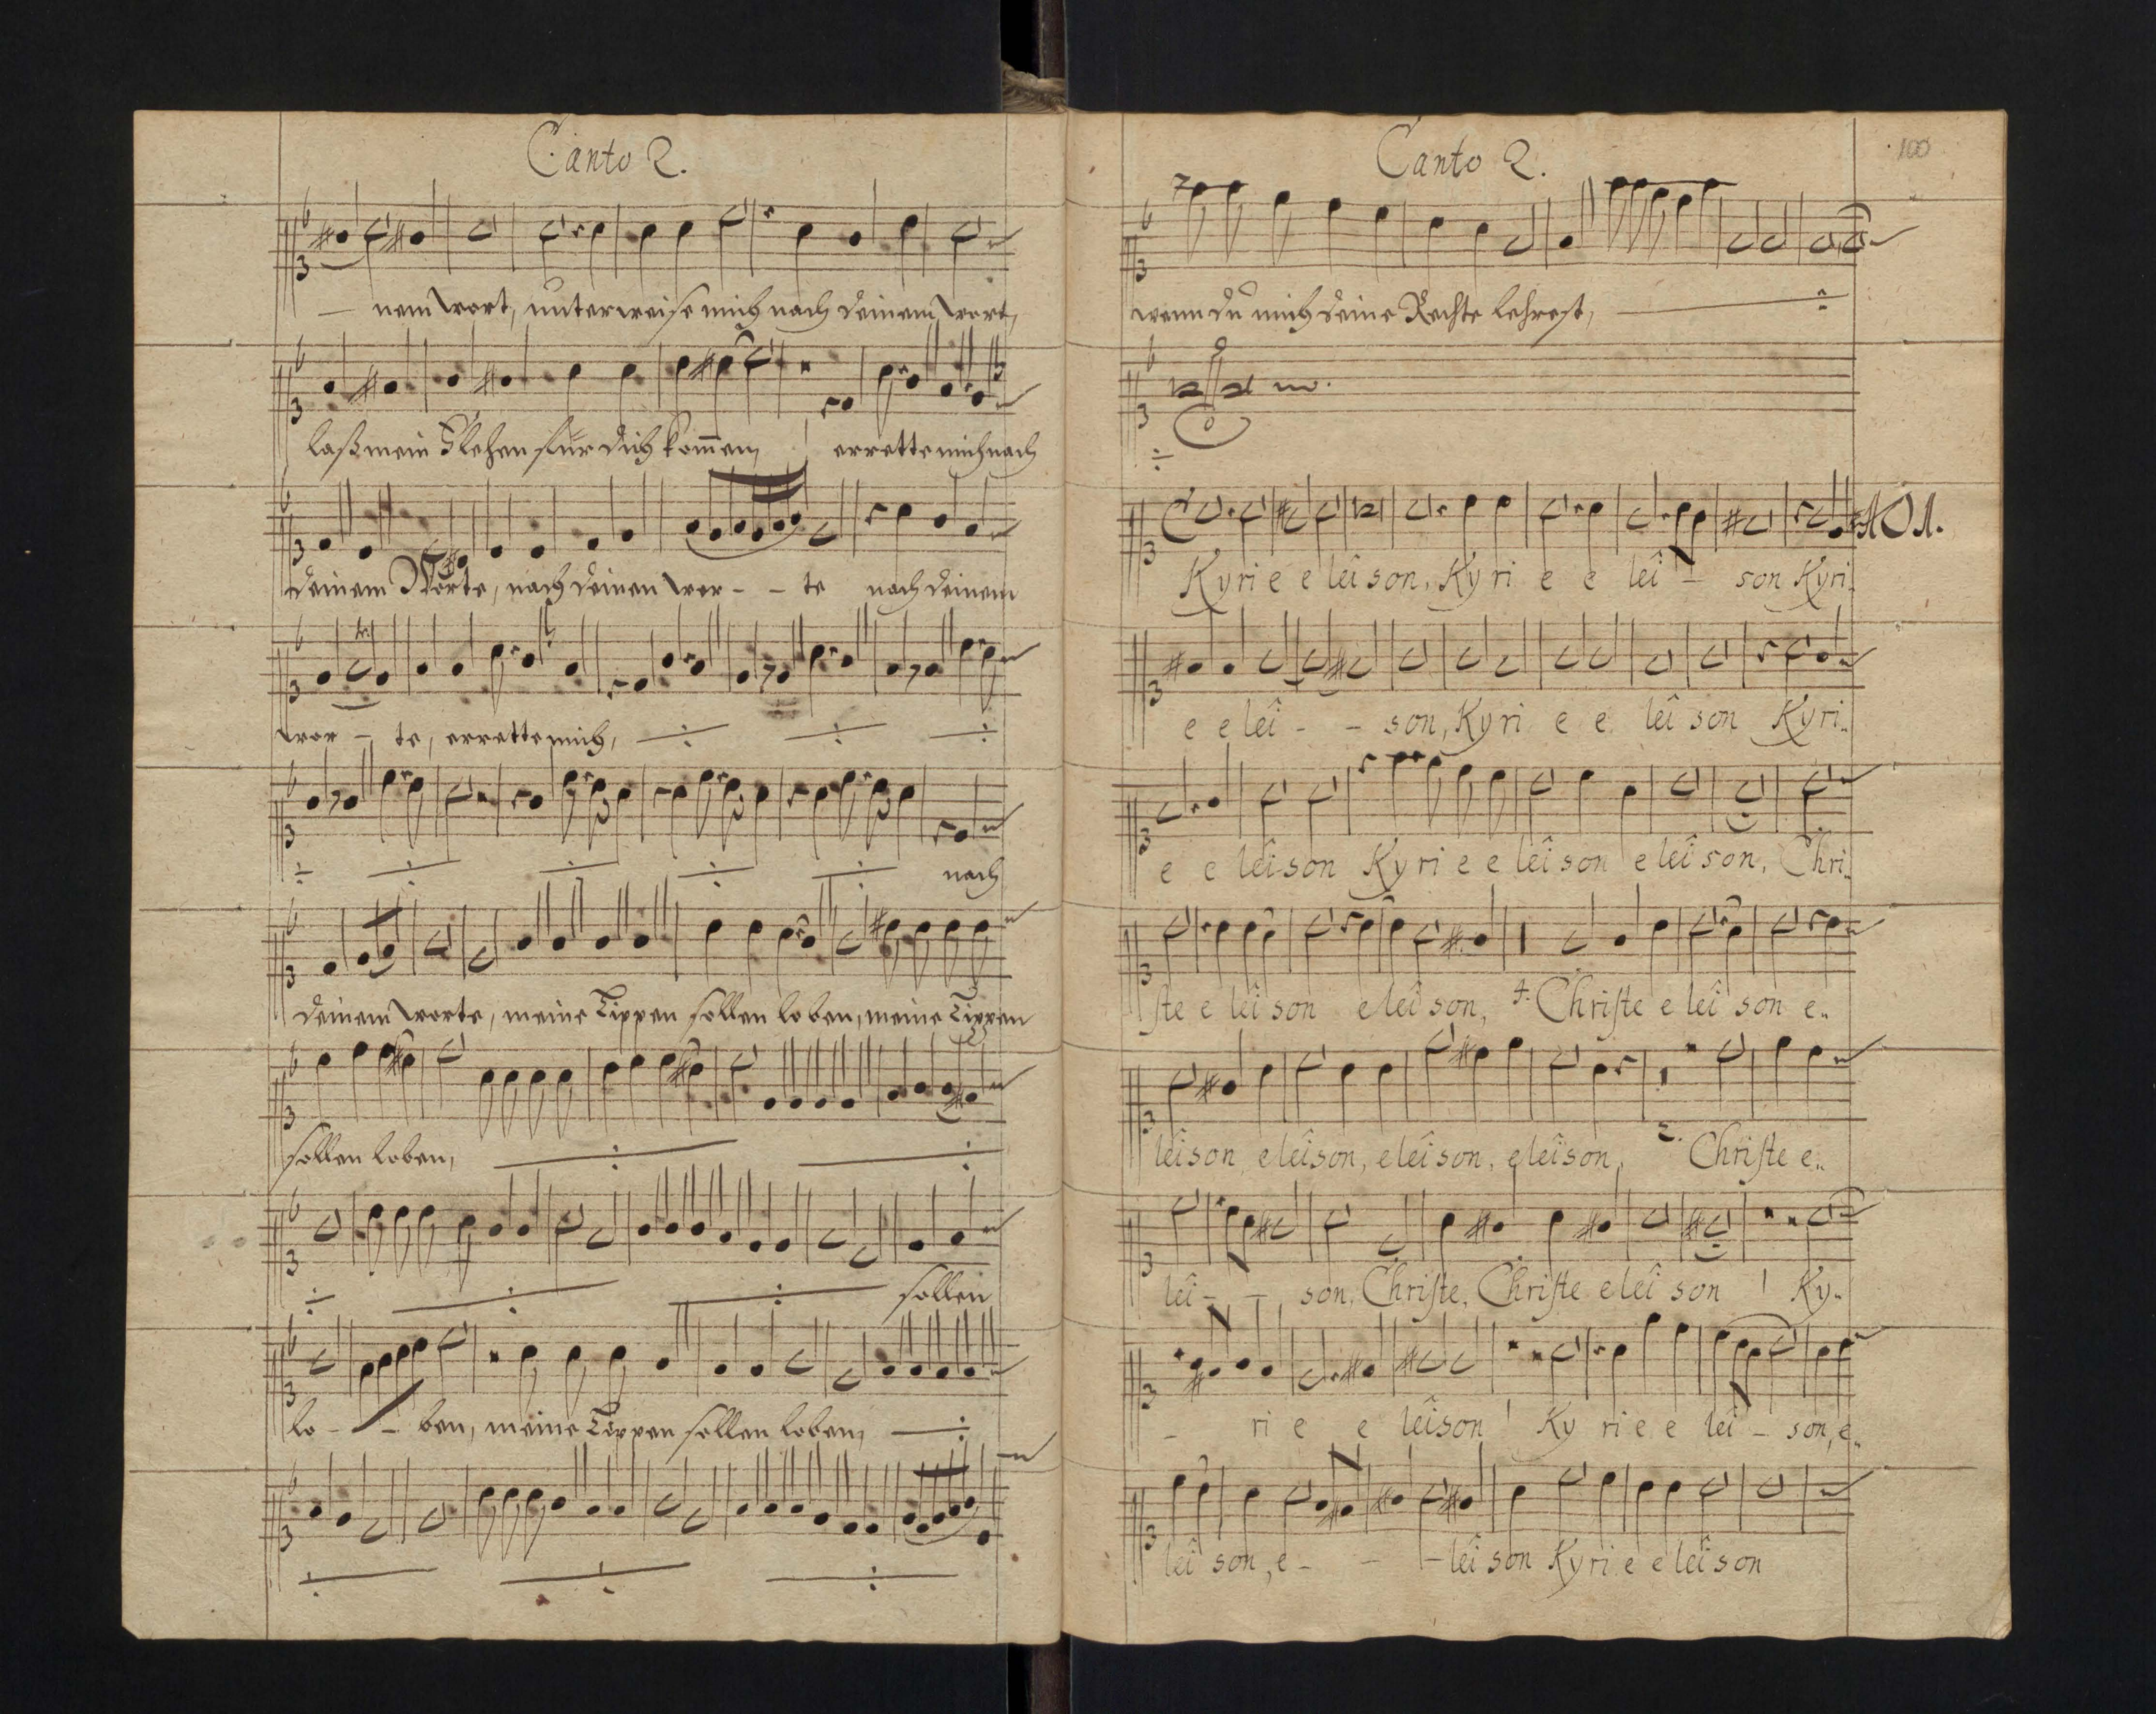 Canto 2.
nem wort, unterweise mich nach deinem wort,
laß mein Flehen für dich kom̅en, errette mich nach
deinem Worte, nach deinen wor - - te nach deinem
wor - te, errette mich,
nach
deinem worte, meine Lippen sollen loben, meine Lippen
sollen loben,
sollen
lo - - ben, meine Lippen sollen loben,
Canto 2.
100
wenn du mich deine Rechte lehrest,
Kyrie e leison, Ky ri e e lei - son Kyri..
e e lei - - son, Kyri e e lei son Kyri..
e e leison Ky ri e e leison e leison, Chri..
ste e lei son e lei son, 4. Christe e lei son e..
leison e leison, e lei son, e leison, 2. Christe e..
lei - - son, Christe, Christe e lei son Ky..
- ri e e leison Ky ri e e lei - son, e..
lei son, e - - - lei son Kyri e e leison